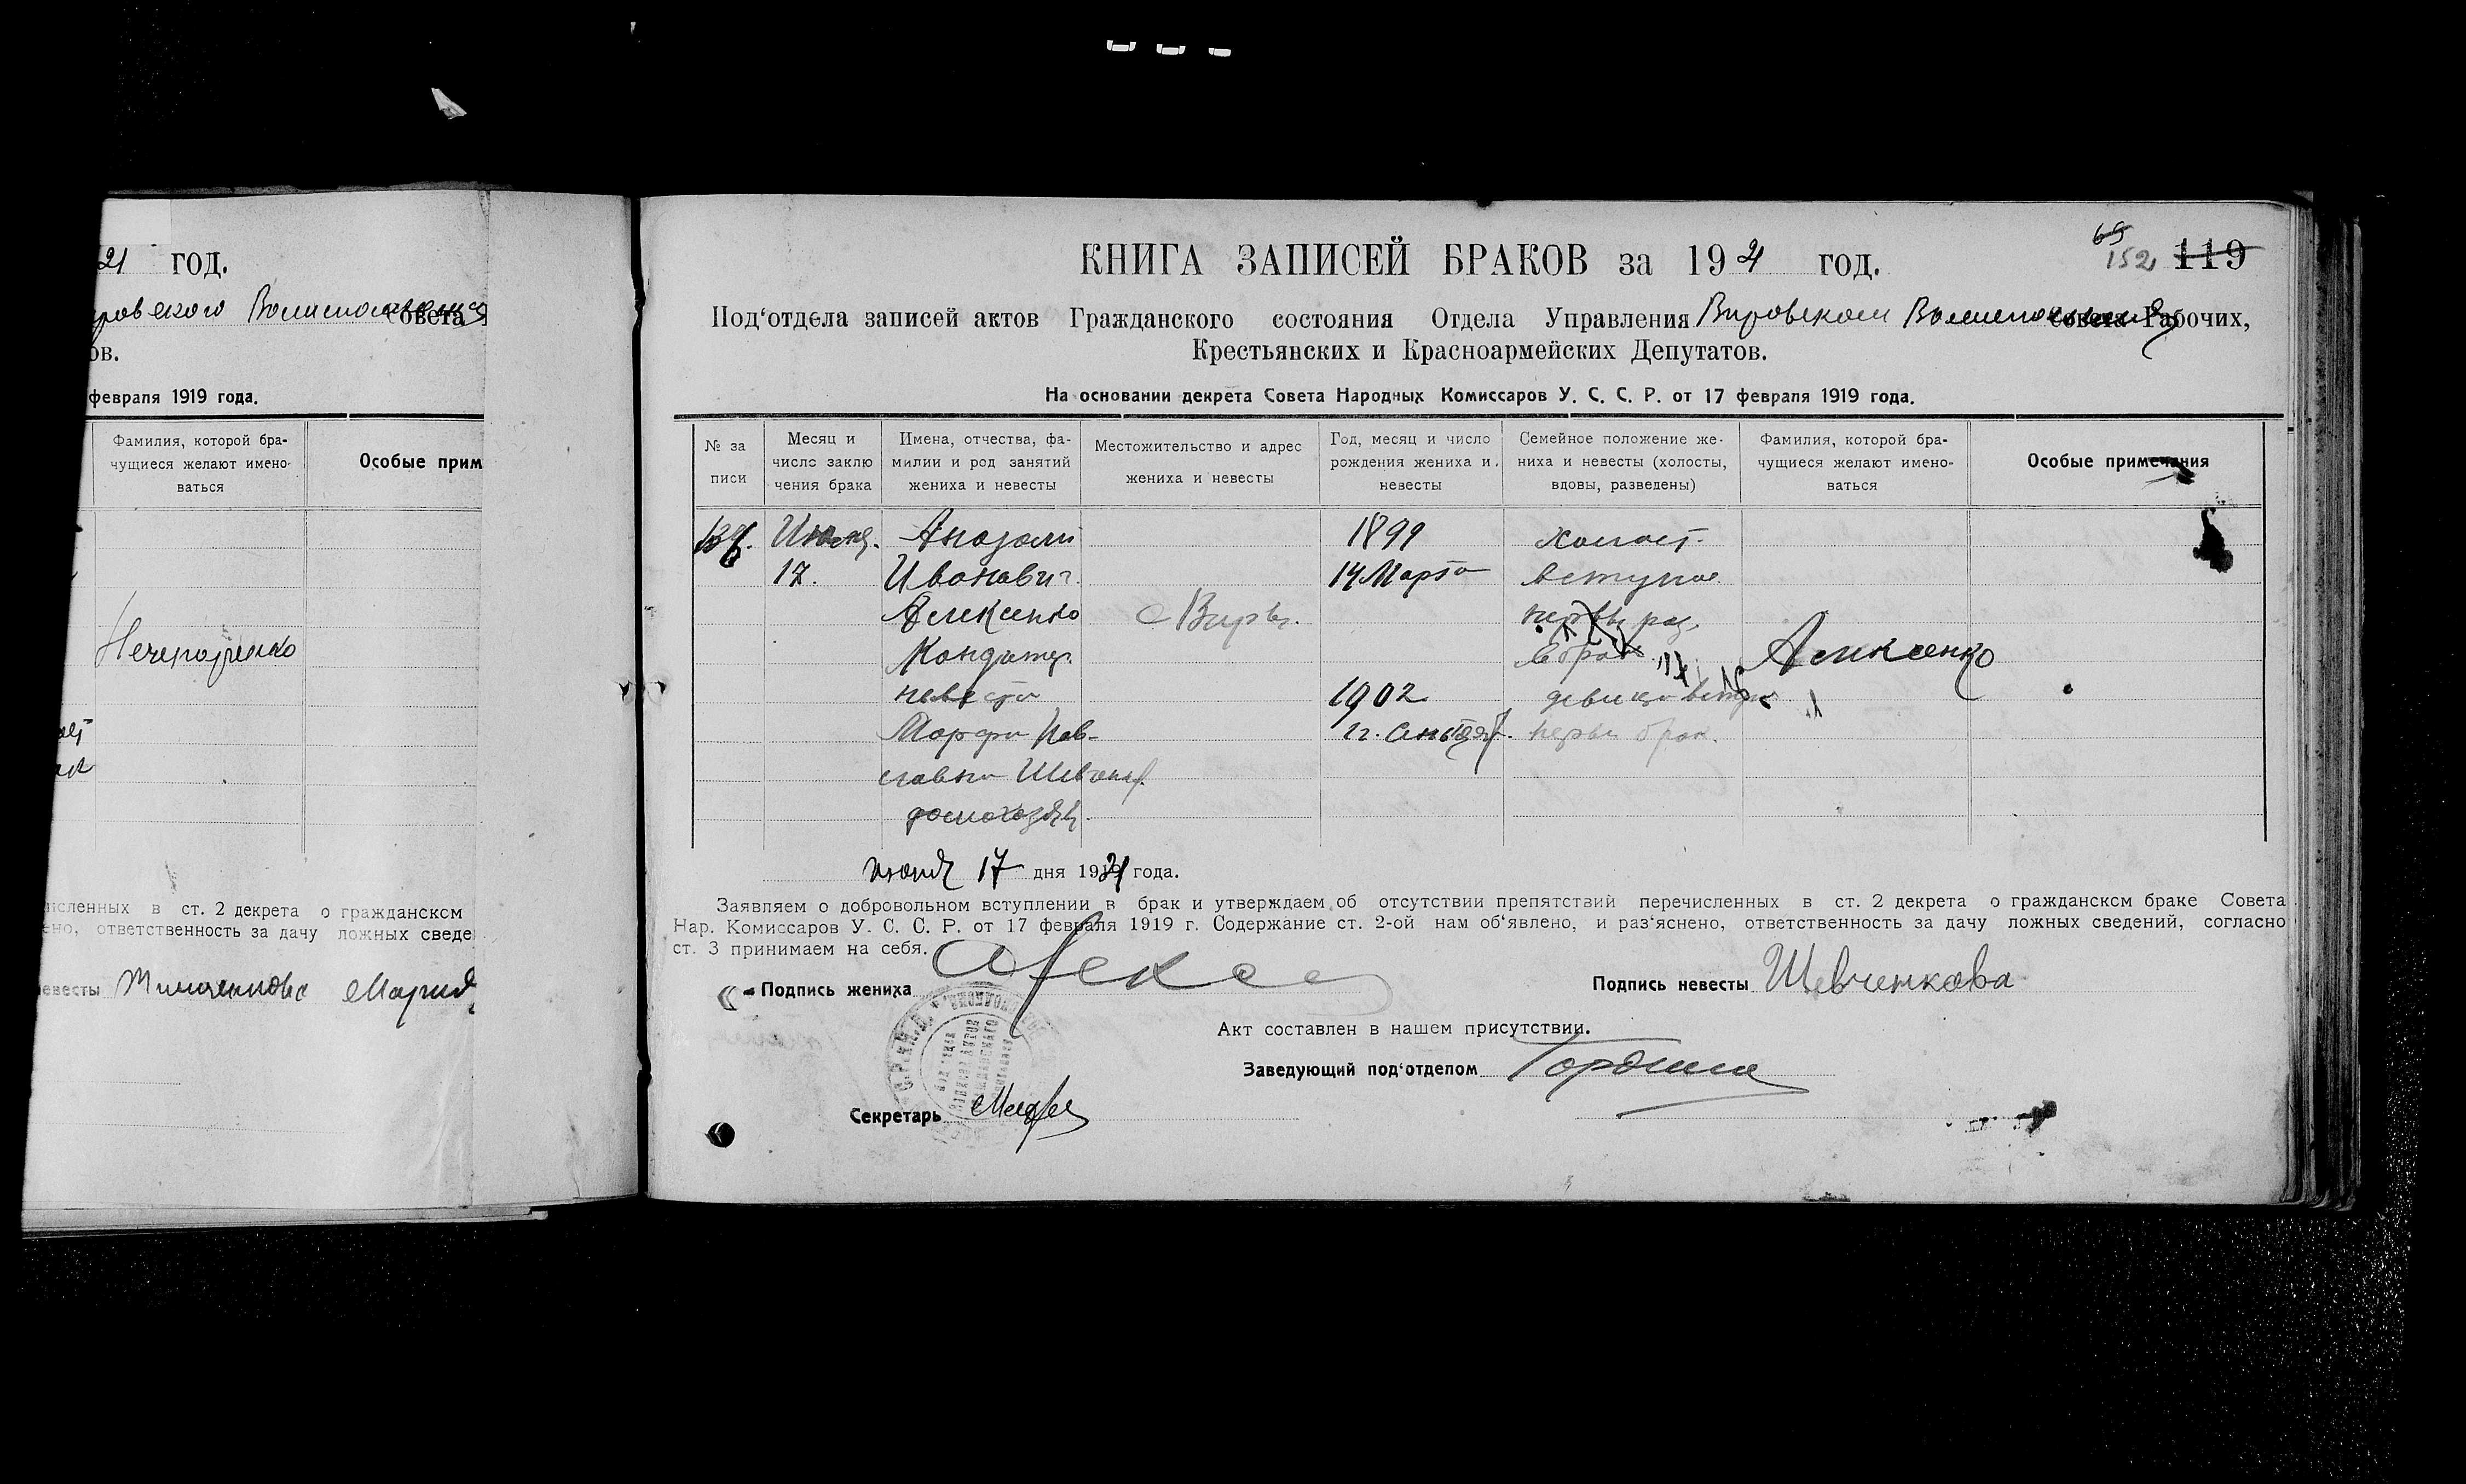 21 ГОД.
Совета
ов.
февраля 1919 года.
Фамилия, которой бра-
чущиеся желают имено-
ваться
Особые прим
Нечепоренко
исленных в ст. 2 декрета о гражданском
ено, ответственность за дачу ложных сведе
евесты Мария
65
152 119
КНИГА ЗАПИСЕЙ БРАКОВ за 1921 год.
Под‘отдела записей актов Гражданского состояния Отдела Управления Вировском Совета Рабочих,
Крестьянских и Красноармейских Депутатов.
На основании декрета Совета Народных Комиссаров У. С. С. Р. от 17 февраля 1919 года.
№ за
писи
Месяц и
число заклю
чения брака
Имена, отчества, фа-
милии и род занятий
жениха и невесты
Местожительство и адрес
жениха и невесты
Год, месяц и число
рождения жениха и
невесты
Семейное положение же-
ниха и невесты (холосты,
вдовы, разведены)
Фамилия, которой бра-
чущиеся желают имено-
ваться
Особые примечания
Анатоли
Иванович
Алексенко
невеста
Марфа Пав-
ловна
17.
С Виры.
1899
14 Марта
1902
холост.
вступае
первы раз
в брак
первы брак.
Алексенко
июня 17 дня 1921 года.
Заявляем о добровольном вступлении в брак и утверждаем об отсутствии препятствий перечисленных в ст. 2 декрета о гражданском браке Совета
Нар. Комиссаров У. С. С. Р. от 17 февраля 1919 г. Содержание ст. 2-ой нам об‘явлено, и раз‘яснено, ответственность за дачу ложных сведений, согласно
ст. 3 принимаем на себя.
Подпись жениха
Подпись невесты Шевченкова
Акт составлен в нашем присутствии.
Заведующий под‘отделом
Секретарь